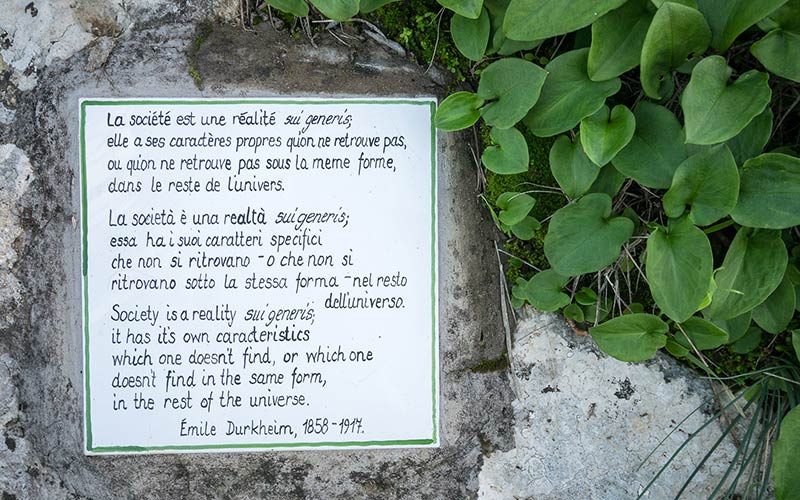 La société est une réalité sui generis;
elle a ses caractères propres qu'on ne retrouve pas,
ou qu'on ne retrouve pas sous la meme forme,
dans le reste de l'univers.
La società è una realtà sui generis;
essa ha i suoi caratteri specifici
che non si ritrovano - o che non si
ritrovano sotto la stessa forma - nel resto
dell'universo.
Society is a reality sui generis;
it has it's own caracteristics
which one doesn't find, or which one
doesn't find in the same form,
in the rest of the universe.
Émile Durkheim, 1858-1917.